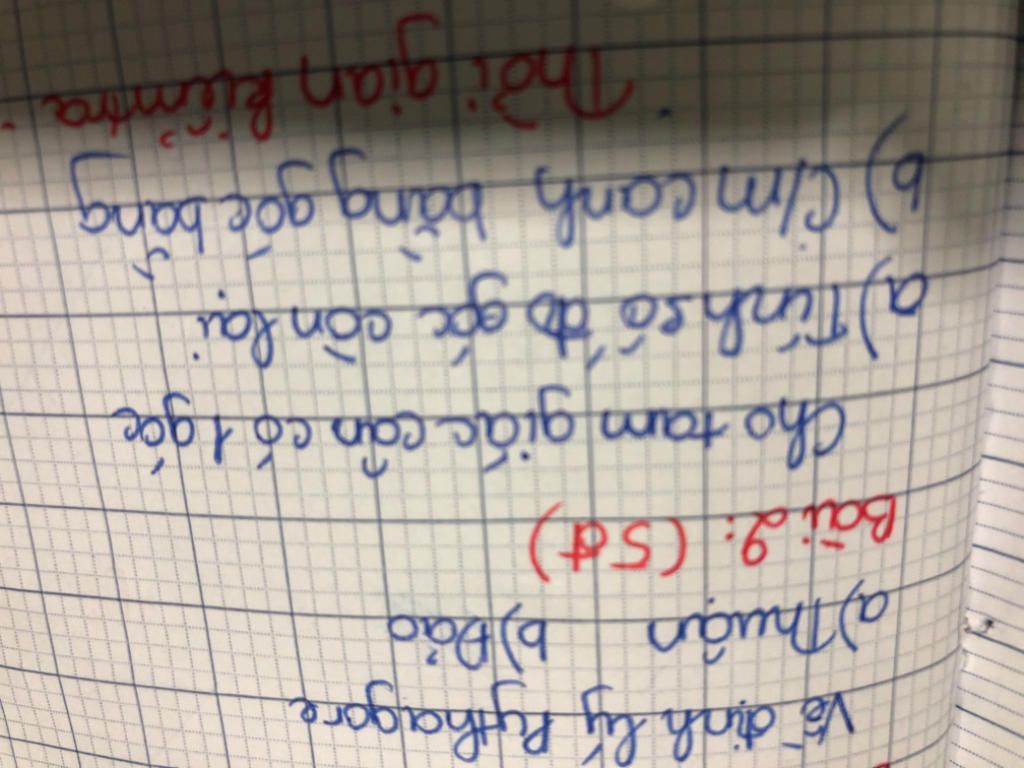 Về định lý Pythagore
a) Thuận b) Đảo
Bài 2: (5đ)
Cho tam giác cân có 1 góc
a) Tính số đo góc còn lại
b) C/m cạnh bằng góc bằng
Thời gian kiểm tra: